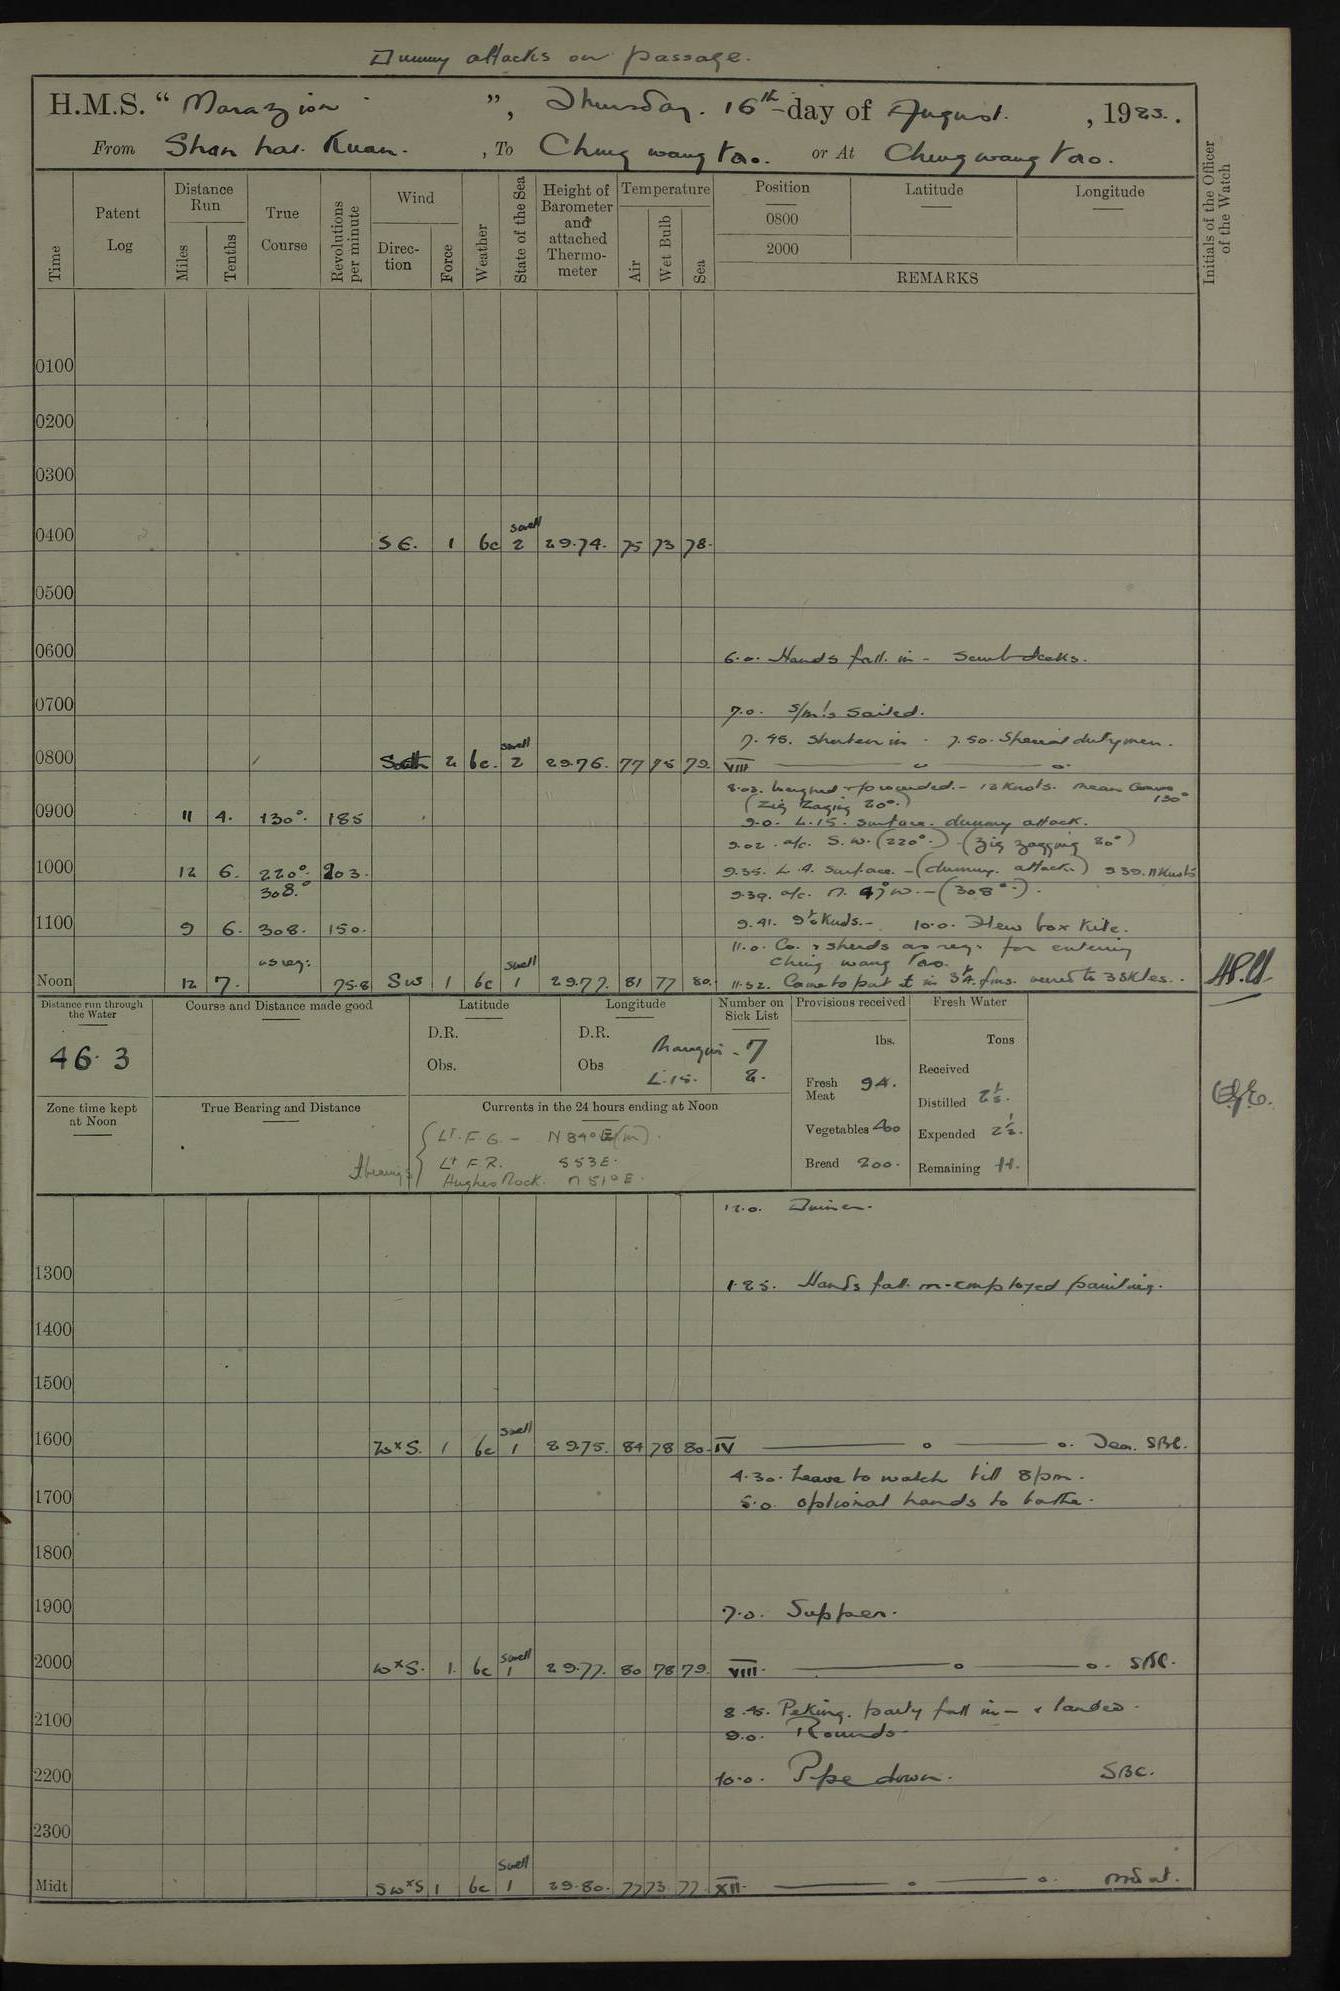 Dummy attacks on passage.
H.M.S. "Marazion", Thursday. 16th day of August. , 1923.
From Shan hai Kuan. , To Ching wang tao. or At Ching wang tao.
Time
Patent Log
Distance Run
Miles
Tenths
True Course
Revolutions per minute
Wind
Direction
Force
Weather
State of the Sea
Height of Barometer and attached Thermometer
Temperature
Air
Wet Bulb
Sea
Position
Latitude
Longitude
0800
2000
REMARKS
Initials of the Officer of the Watch
0100
0200
0300
0400 SE. 1 bc swell 2 29.74. 75 73 78.
0500
0600 6.0. Hands fall in - Scrub decks.
0700 7.0. S/m's sailed.
7.45. Shorten in. 7.50. Special dutymen.
0800 South 2 bc. swell 2 29.76. 77 75 79. VIII
8.02. Weighed & proceeded. - 12 Knots. Mean Course 130°
(Zig Zaging 20°.)
0900 11 4. 130°. 185 9.0. L.15. surface. dummy attack.
9.02. a/c. S.W. (220°.) (Zig zagging 20°)
1000 12 6. 220°. 203. 9.35. L.4. surface. - (dummy. attack.) 9.39. 11 Knots
308.° 9.39. a/c. N. 49° W. - (308°.).
1100 9 6. 308. 150. 9.41. 9½ Knots. - 10.0. Flew box Kite.
11.0. Co. & speeds as req. for entering
as req: Ching wang Tao.
Noon 12 7. 75.8 SW 1 bc swell 1 29.77. 81 77 80. 11.52. Came to port ⚓ in 3¾. fms. veered to 3 Skles.
Distance run through the Water
Course and Distance made good
Latitude
Longitude
Number on Sick List
Provisions received
Fresh Water
46.3
D.R.
Obs.
D.R.
Obs
Marazion - 7
L.15. 2.
lbs.
Fresh Meat 94.
Vegetables 400
Bread 200.
Tons
Received
Distilled 2½.
Expended 2½.
Remaining 11.
Zone time kept at Noon
True Bearing and Distance
Currents in the 24 hours ending at Noon
⚓ bearings
Lt. F.G. - N 84° E (m).
Lt F.R. S 53 E.
Hughes Rock. N 51° E.
12.0. Dinner.
1300 1.25. Hands fall in - employed painting.
1400
1500
1600 W x S. 1 bc swell 1 29.75. 84 78 80. IV SBC.
4.30. Leave to watch till 8 pm.
1700 5.0. optional hands to bathe.
1800
1900 7.0. Supper.
2000 W x S. 1. bc swell 1 29.77. 80 78 79. VIII. SBC.
8.45. Peking. party fall in - & landed.
2100 9.0. Rounds
2200 10.0. Pipe down. SBC.
2300
Midt SW x S 1 bc swell 1 29.80. 77 73. 77. XII.